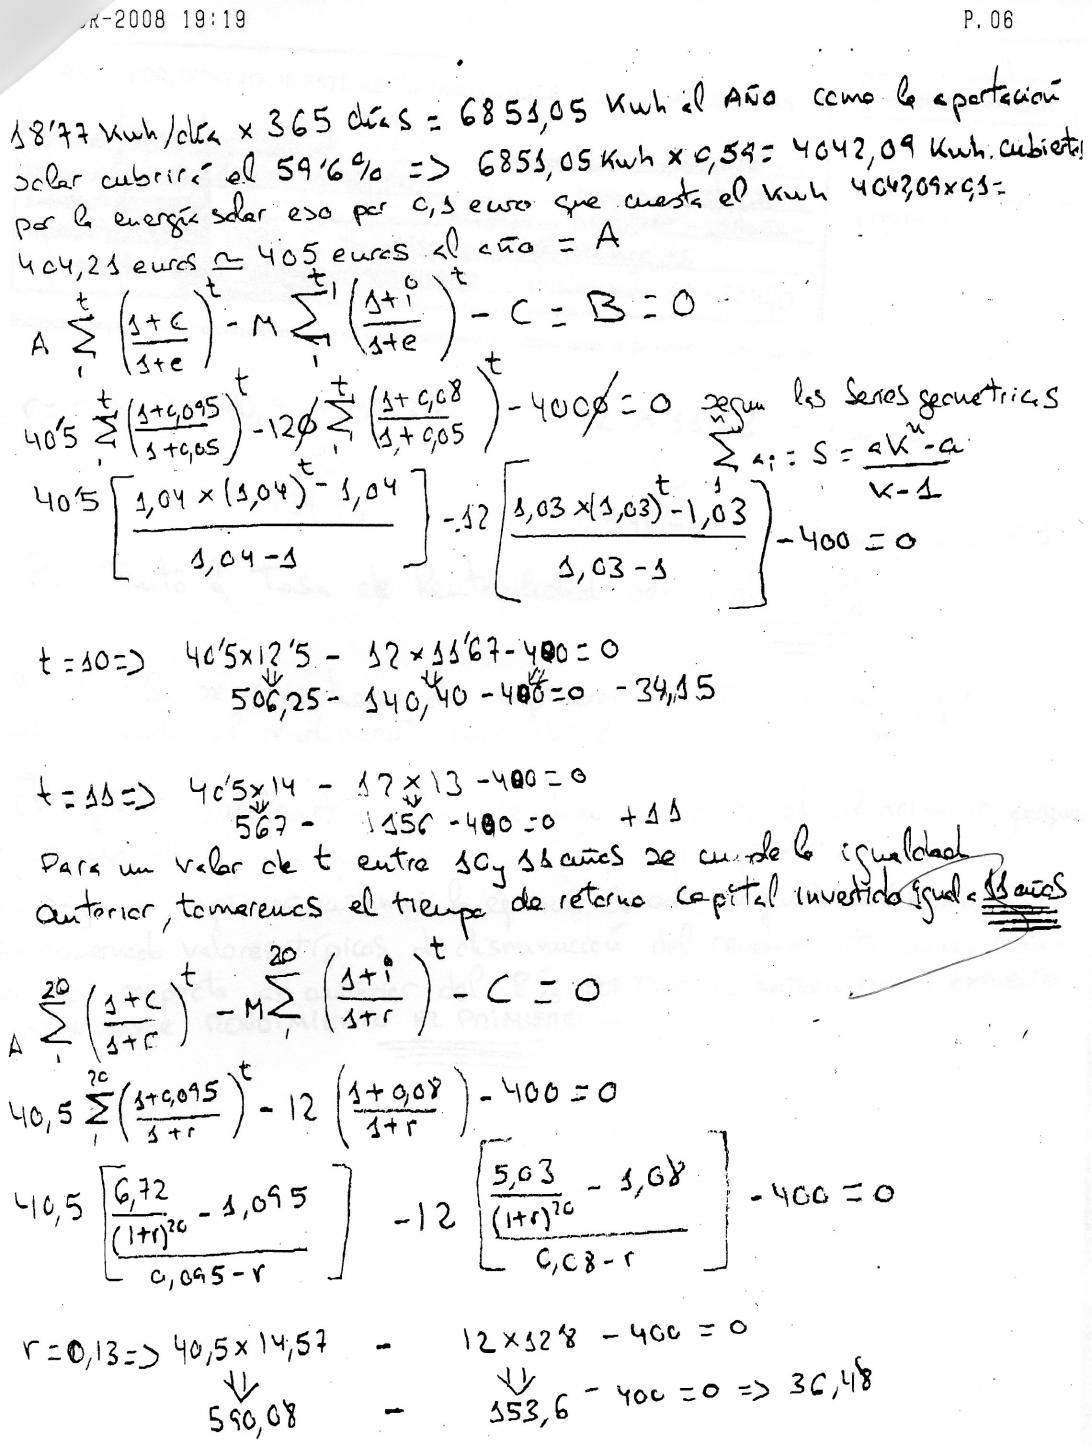 R-2008 19:19 P.06
18'77 Kwh/día x 365 días = 6851,05 Kwh al AÑO como la aportación
solar cubrirá el 59'6% => 6851,05 Kwh x 0,59 = 4042,09 Kwh. cubiertos
por la energía solar eso por 0,1 euro que cuesta el Kwh 4042,09x0,1=
404,21 euros ≃ 405 euros al año = A
A ∑₁ᵗ ((1+c)/(1+e))ᵗ - M ∑₁ᵗ ((1+i)/(1+e))ᵗ - C = B = 0
40'5 ∑₁ᵗ ((1+0,095)/(1+0,05))ᵗ - 120 ∑₁ᵗ ((1+0,08)/(1+0,05))ᵗ - 4000 = 0 segun las series geometricas
∑₁ⁿ ai = S = (aKⁿ-a)/(K-1)
40'5 [(1,04 x (1,04)ᵗ - 1,04)/(1,04-1)] - 12 [(1,03 x (1,03)ᵗ - 1,03)/(1,03-1)] - 400 = 0
t=10=> 40'5x12'5 - 12x11'67-400=0
506,25- 140,40 -400=0 -34,15
t=11=> 40'5x14 - 12x13 -400=0
567 - 156 -400=0 +11
Para un valor de t entre 10 y 11 años se cumple la igualdad
anterior, tomaremos el tiempo de retorno capital invertido igual a 11 años
A ∑₁²⁰ ((1+c)/(1+r))ᵗ - M ∑₁²⁰ ((1+i)/(1+r))ᵗ - C = 0
40,5 ∑₁²⁰ ((1+0,095)/(1+r))ᵗ - 12 ((1+0,08)/(1+r)) - 400 = 0
40,5 [(6,72/(1+r)²⁰ - 1,095)/(0,095-r)] - 12 [(5,03/(1+r)²⁰ - 1,08)/(0,08-r)] - 400 = 0
r=0,13=> 40,5x14,57 - 12x128 - 400 = 0
590,08 - 153,6 - 400 = 0 => 36,48